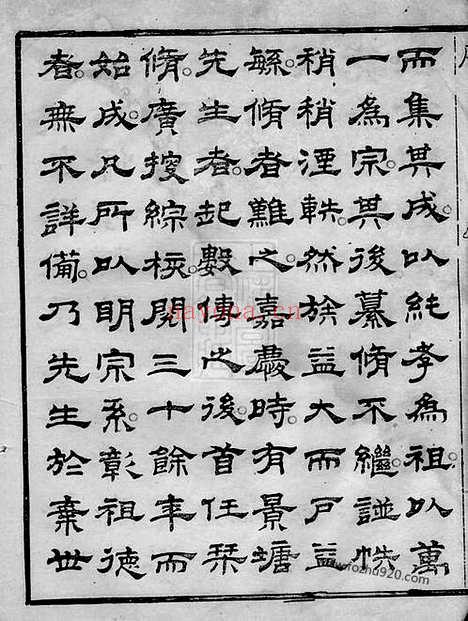 而集其成以純孝為祖以萬
一為宗其後纂脩不繼譜帙
稍稍湮軼然族益大而戶益
緐脩者難之嘉慶時有景塘
先生者起數傳之後首任栞
脩廣搜綜核閱三十餘年而
始成凡所以明宗系彰祖德
者無不詳備乃先生於棄世
nayona.cn
www.fozhu920.com